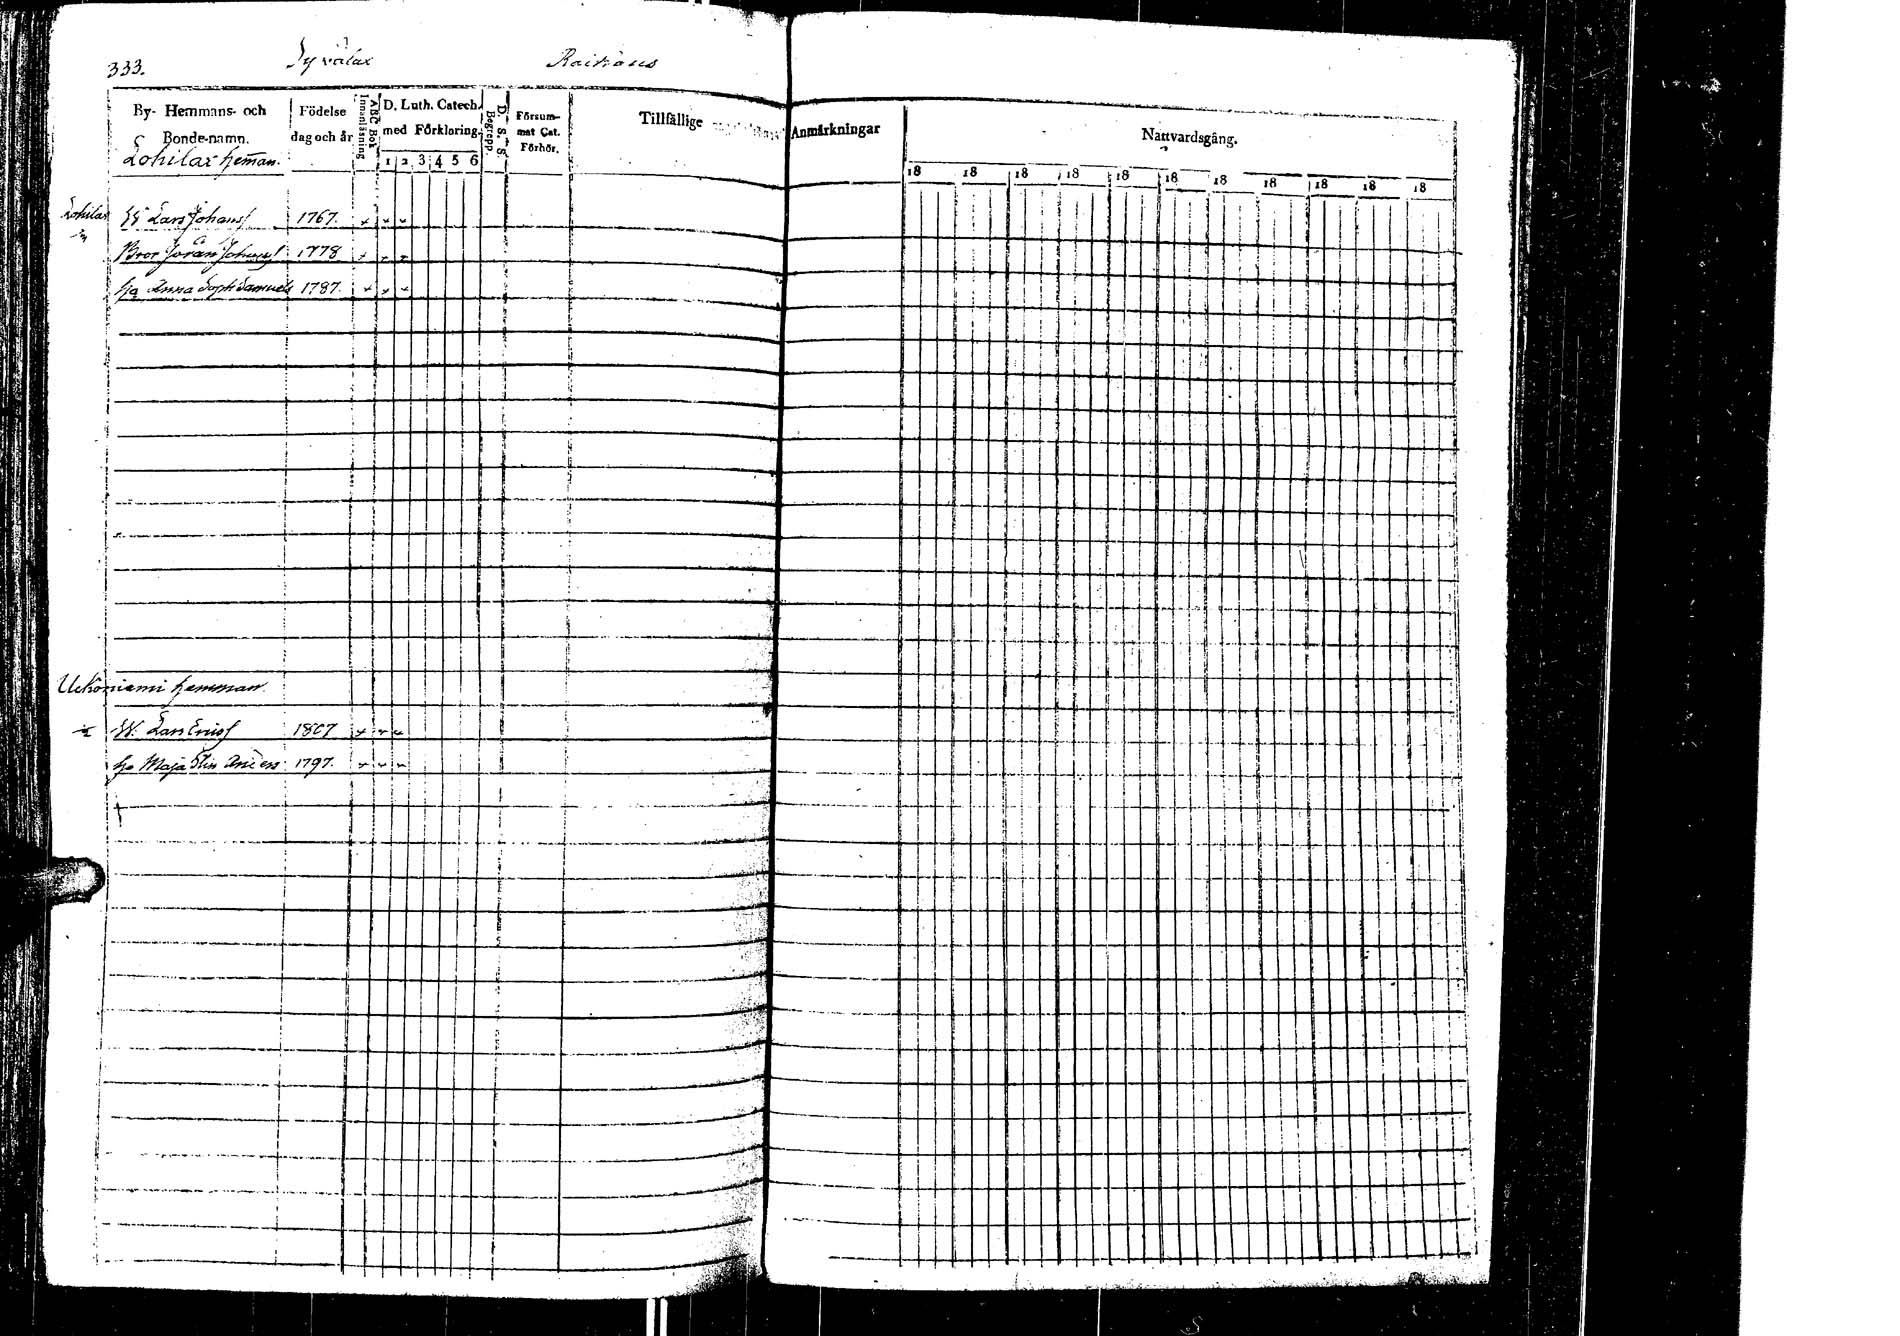 333. Syvälax Raikaus
By- Hemmans- och Bonde-namn.
Födelse dag och år
ABC Bok Innanläsning
D. Luth. Catech. med Förklaring.
1 2 3 4 5 6
D. S. S. Begrepp
Försum- mat Cat. Förhör.
Tillfällige Anmärkningar
Nattvardsgång.
18 18 18 18 18 18 18 18 18 18 18
Lohilax heman.
Lohilax W Lars Johans 1767.
Bror Jöran Johans 1778
hu Anna Soph Samuels 1787.
hemman.
W. Lars Erics 1807
hu Maja Stin 1797.